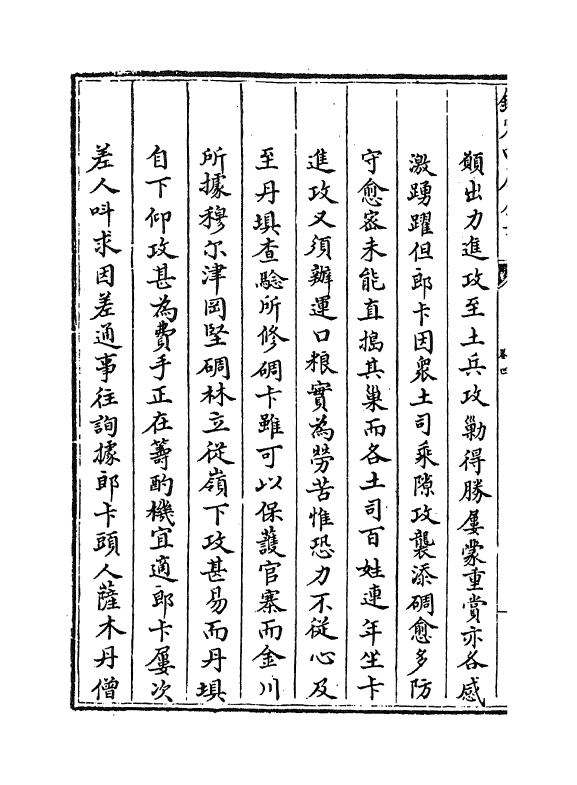 顚出力進攻至土兵攻勦得勝屢蒙重賞亦各感
激踴躍但郎卡因衆土司乘隙攻襲添碉愈多防
守愈宻未能直搗其巢而各土司百姓連年坐卡
進攻又須辦運口粮實為勞苦惟恐力不從心及
至丹埧查驗所修碉卡雖可以保護官寨而金川
所據穆尔津岡堅碉林立從嶺下攻甚易而丹埧
自下仰攻甚為費手正在籌酌機宜適郎卡屢次
差人呌求因差通事往詢據郎卡頭人薩木丹僧
卷四